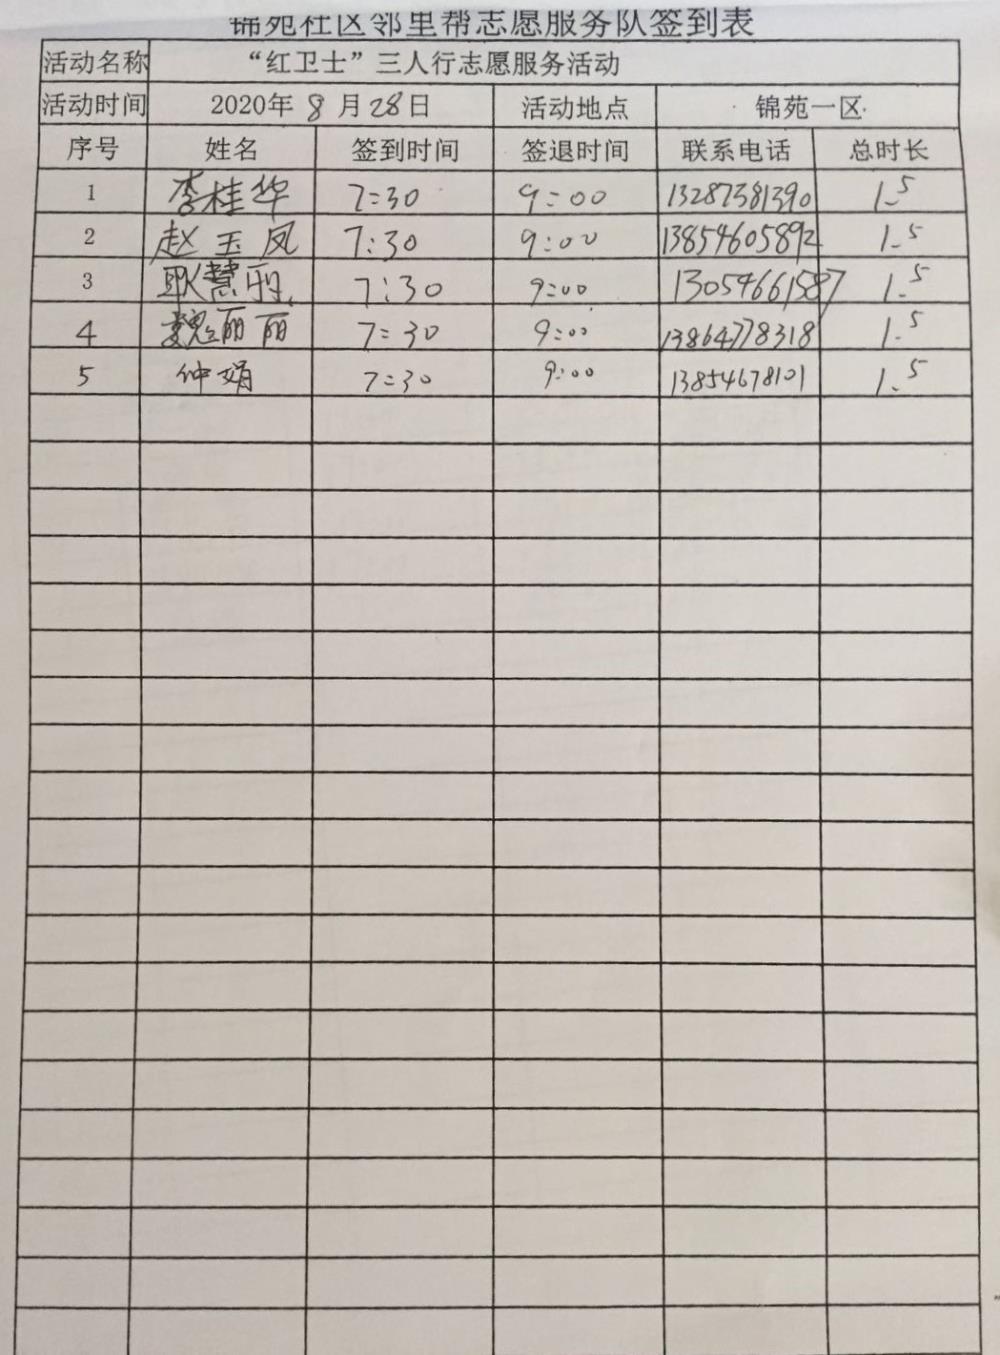 锦苑社区邻里帮志愿服务队签到表
活动名称 “红卫士”三人行志愿服务活动
活动时间 2020年 8 月 28 日 活动地点 锦苑一区
序号 姓名 签到时间 签退时间 联系电话 总时长
1 李桂华 7:30 9:00 13287381390 1.5
2 赵玉凤 7:30 9:00 13854605892 1.5
3 耿慧 7:30 9:00 13054661587 1.5
4 魏丽丽 7:30 9:00 13864778318 1.5
5 仲娟 7:30 9:00 13854678101 1.5